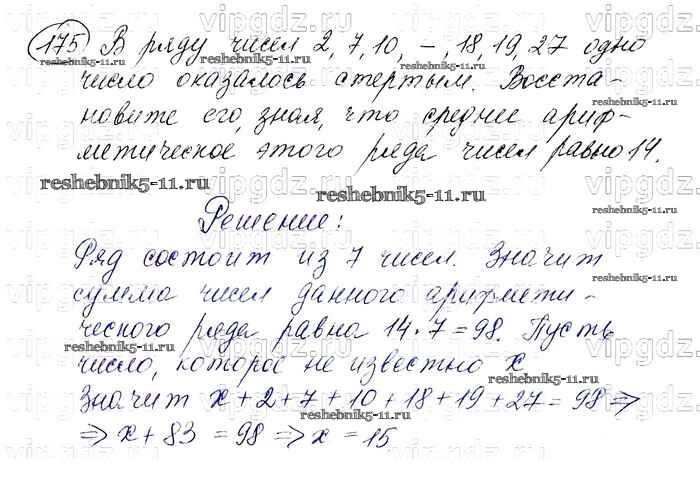 175 В ряду чисел 2, 7, 10, –, 18, 19, 27 одно
число оказалось стертым. Восста-
новите его, зная, что среднее ариф-
метическое этого ряда чисел равно 14.
Решение:
Ряд состоит из 7 чисел. Значит
сумма чисел данного арифмети-
ческого ряда равна 14·7=98. Пусть
число, которое не известно x
Значит x+2+7+10+18+19+27=98 ⇒
⇒ x+83=98 ⇒ x=15
reshebnik5-11.ru
vipgdz.ru